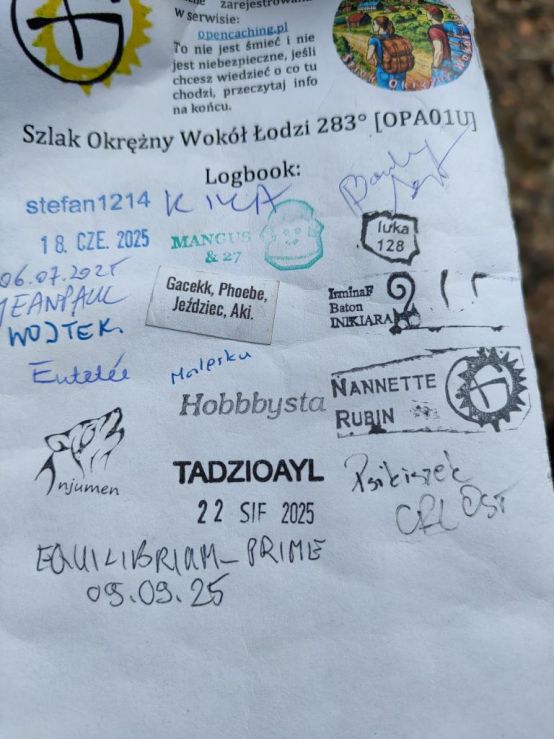 zarejestrowana
W serwisie:
opencaching.pl
To nie jest śmieć i nie
jest niebezpieczne, jeśli
chcesz wiedzieć o co tu
chodzi, przeczytaj info
na końcu.
Szlak Okrężny Wokół Łodzi 283° [OPA01U]
Logbook:
stefan1214
18. CZE. 2025
MANGUS
& 27
luka
128
06.07.2025
JEANPAUL
WOJTEK
Gacekk, Phoebe,
Jeździec, Aki.
IrminaF
Baton
INIKIARA
Entelée
Malesku
Hobbbysta
NANNETTE
RUBIN
njumen
TADZIOAYL
22 SIF 2025
EQUILIBRIUM_PRIME
09.09.25